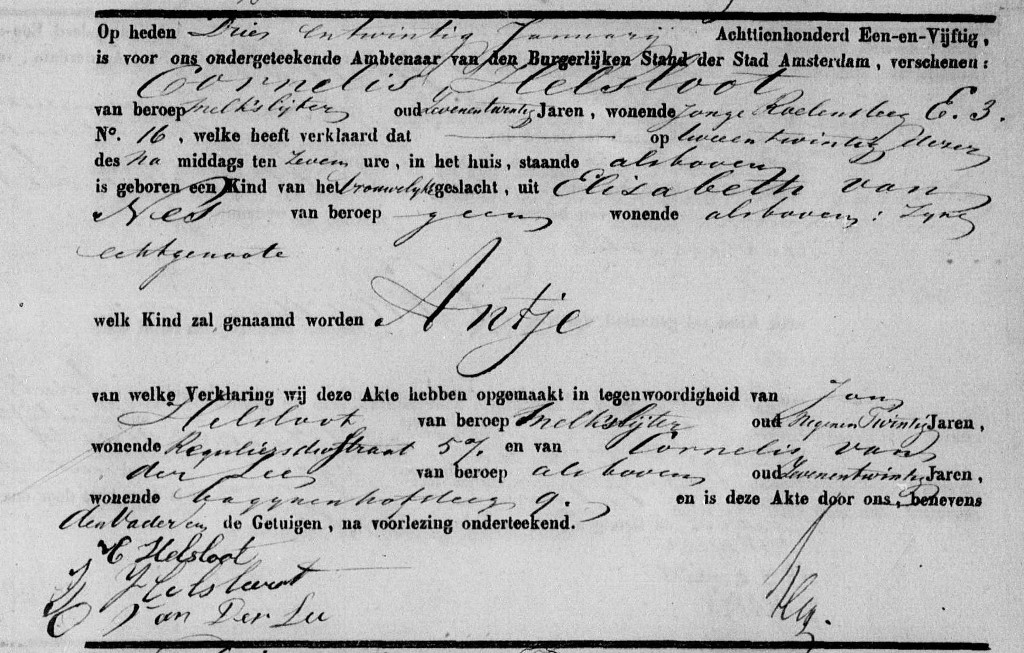 Op heden Dries entwintig Januarij Achttienhonderd Een-en-Vijftig,
is voor ons ondergeteekende Ambtenaar van den Burgerlijken Stand der Stad Amsterdam, verschenen:
Cornelis Helsloot
van beroep melkslijter oud zevenentwintig Jaren, wonende Jonge Roelensteeg E. 3.
No. 16, welke heeft verklaard dat op tweeentwintig dezer
des na middags ten zeven ure, in het huis, staande alsboven
is geboren een Kind van het vrouwelijk geslacht, uit Elisabeth van
Nes van beroep geen wonende alsboven; zyne
echtgenoote
welk Kind zal genaamd worden Antje
van welke Verklaring wij deze Akte hebben opgemaakt in tegenwoordigheid van Jan
Helsloot van beroep melkslijter oud negenen Twintig Jaren,
wonende Reguliersdwstraat 57. en van Cornelis van
der Lee van beroep alsboven oud zevenentwintig Jaren,
wonende bagynenhofsteeg 9. en is deze Akte door ons, benevens
den Vader en de Getuigen, na voorlezing onderteekend.
C Helsloot
J Helsloot
C van Der Lee